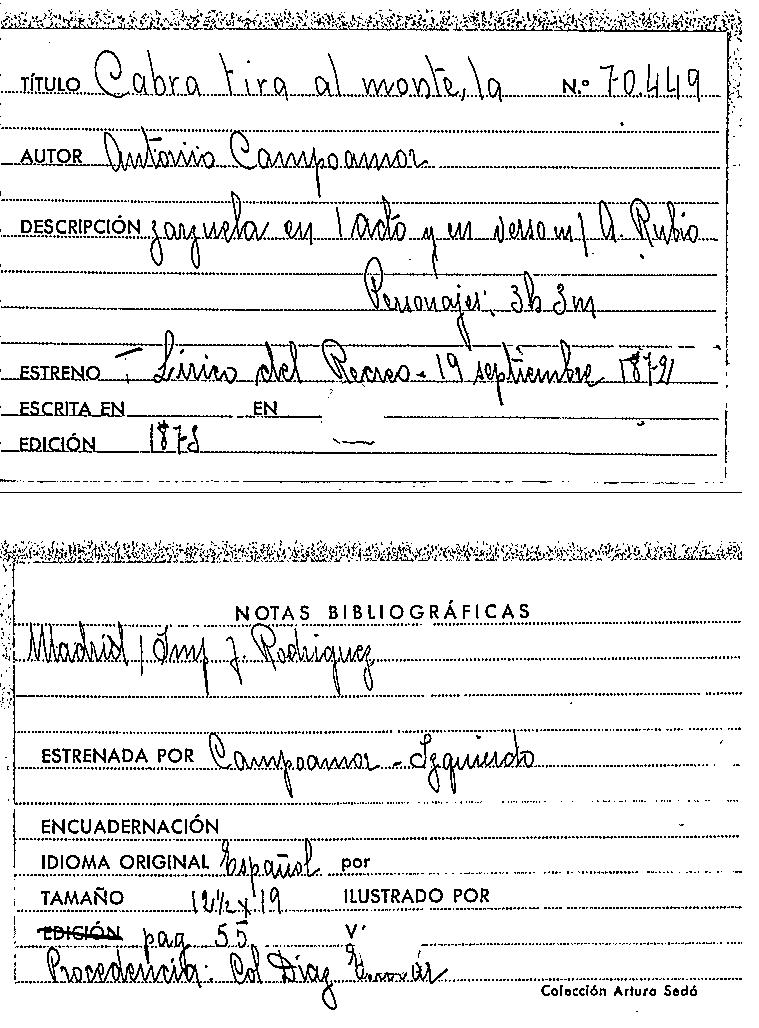 TÍTULO Cabra tira al monte, la N.º 70.449
AUTOR Antonio Campoamor
DESCRIPCIÓN zarzuela en 1 acto y en verso m/ A. Rubio
Personajes: 3h 3m
ESTRENO T. Lírico del Recreo - 19 septiembre
ESCRITA EN EN
EDICIÓN
NOTAS BIBLIOGRÁFICAS
Madrid / Imp J. Rodriguez
ESTRENADA POR Campoamor - Izquierdo
ENCUADERNACIÓN
IDIOMA ORIGINAL Español por
TAMAÑO 12 1/2 x 19 ILUSTRADO POR
EDICIÓN pag 55 V.
Procedencia: Col Díaz
Colección Arturo Sedó